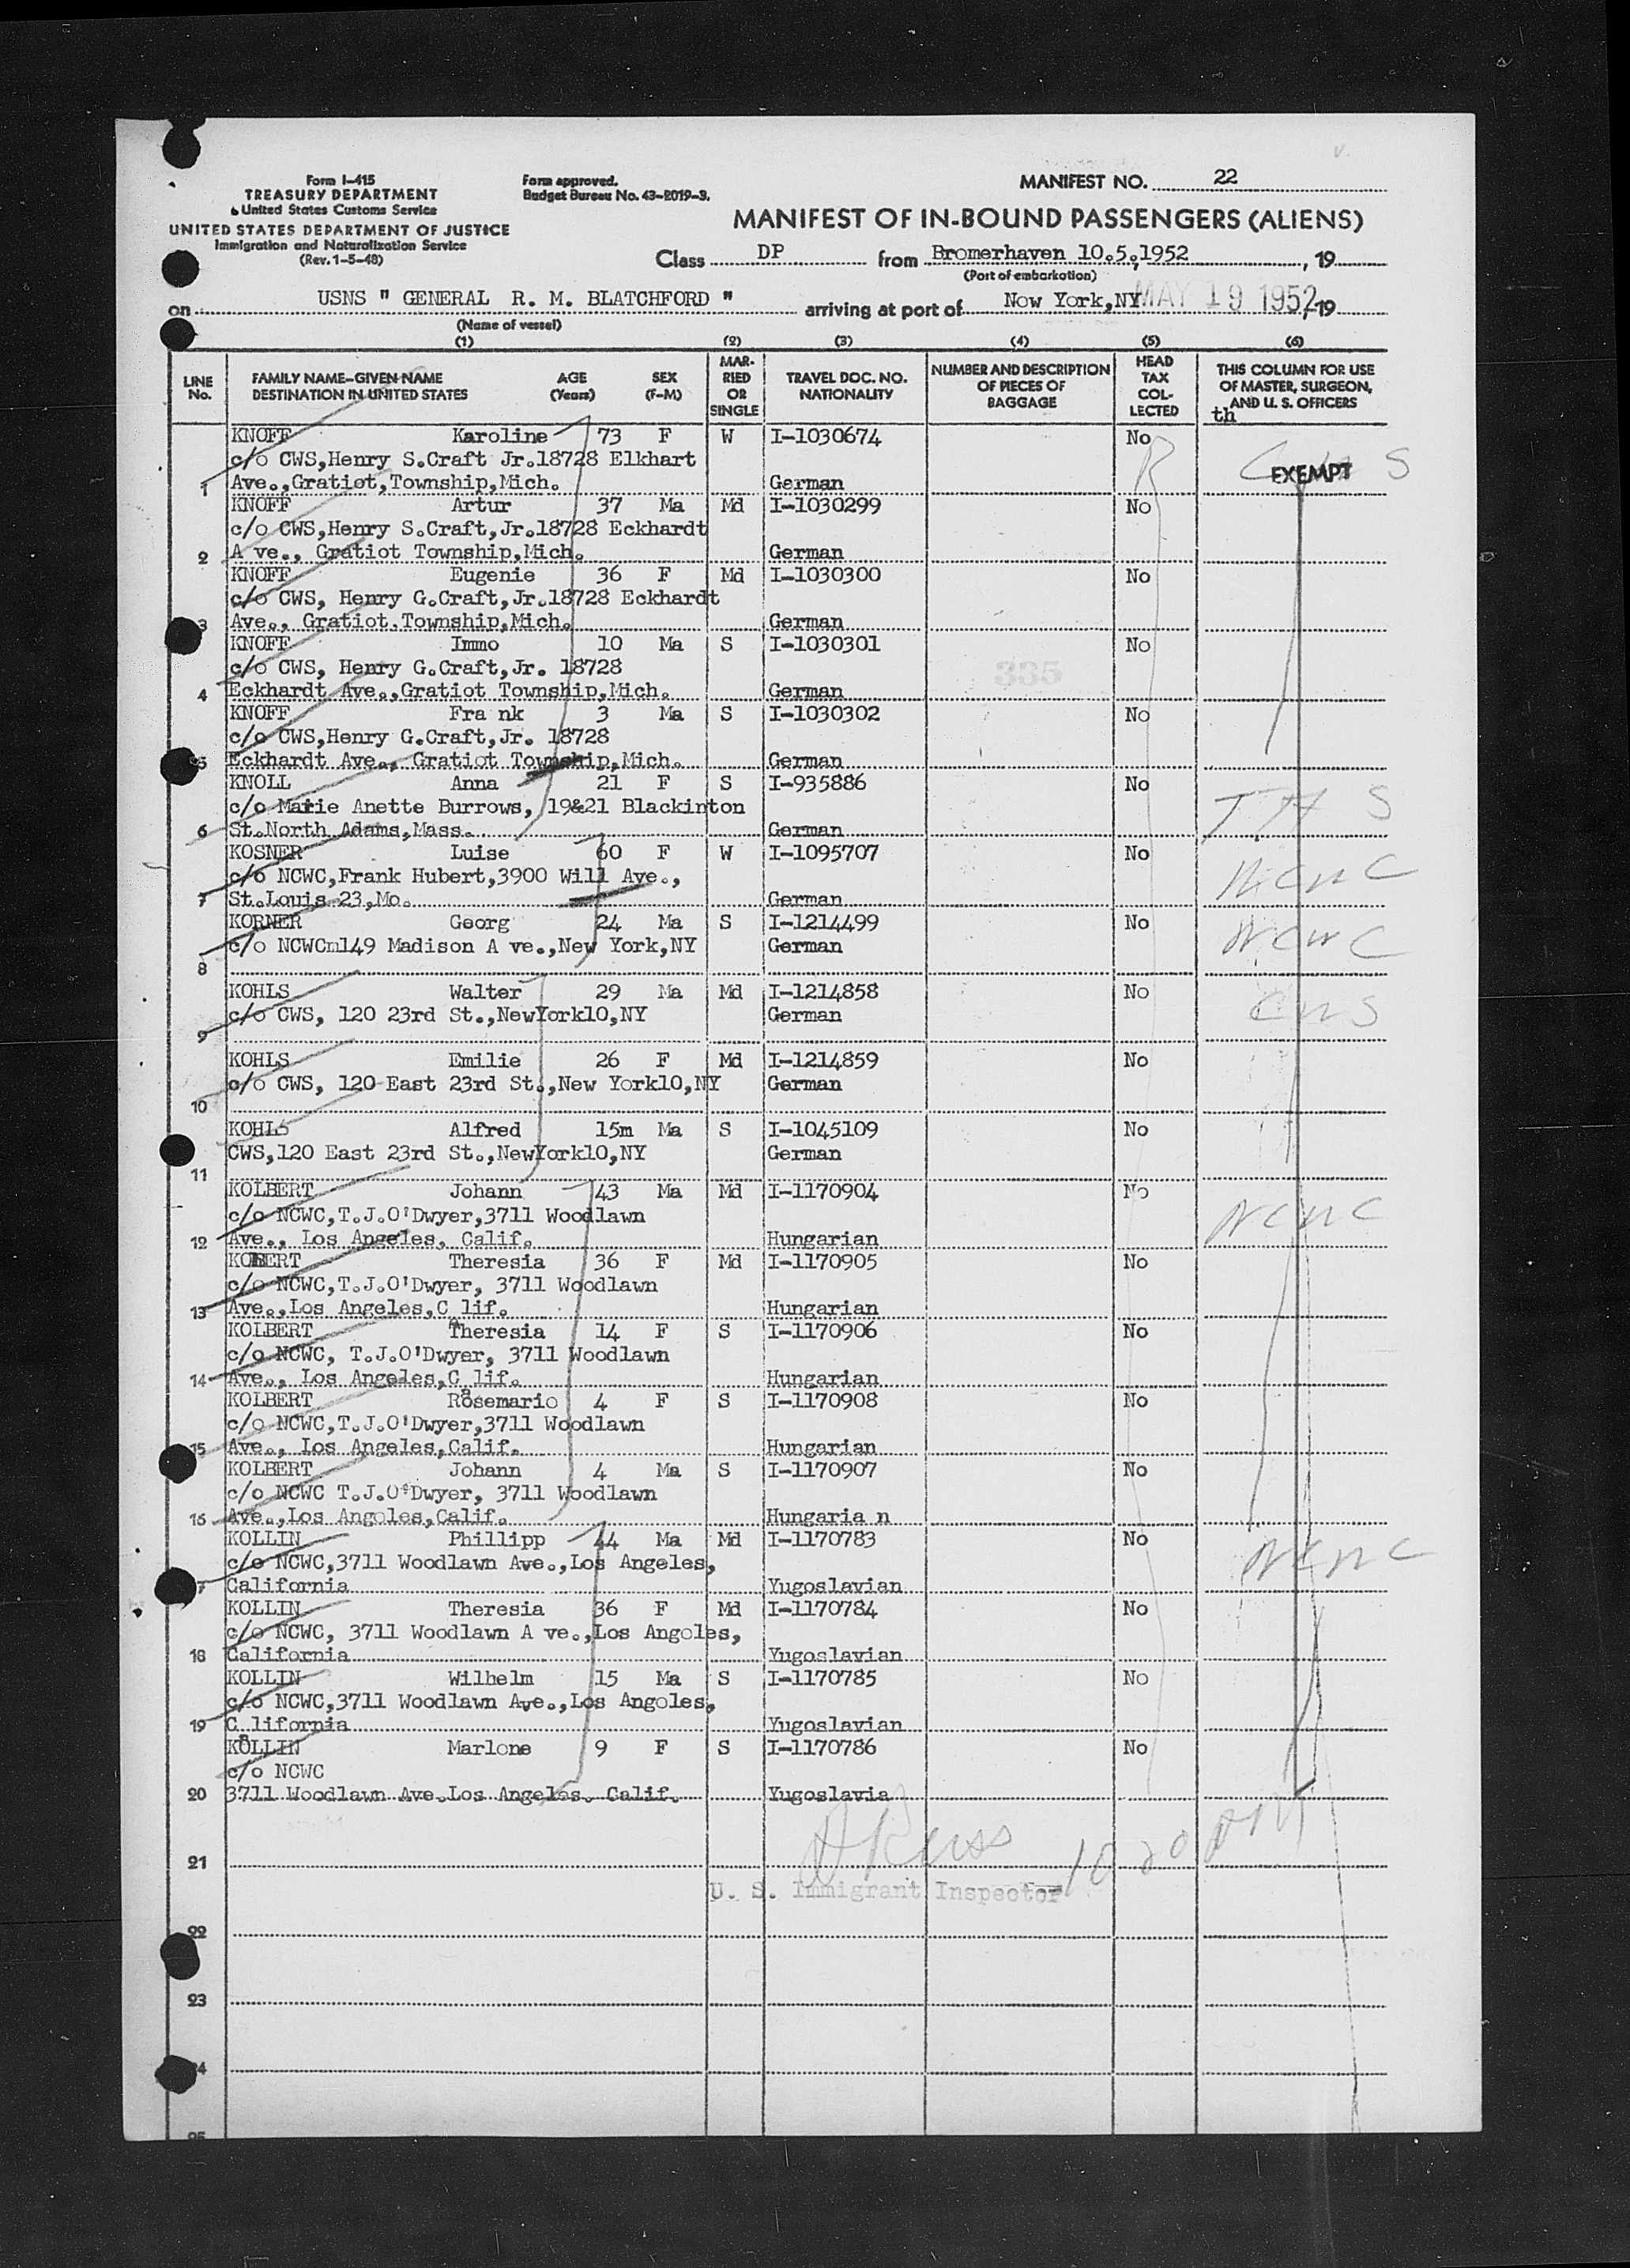 Form I-415
TREASURY DEPARTMENT
United States Customs Service
UNITED STATES DEPARTMENT OF JUSTICE
Immigration and Naturalization Service
(Rev. 1-5-48)
Form approved.
Budget Bureau No. 43-R019-3.
MANIFEST NO. 22
MANIFEST OF IN-BOUND PASSENGERS (ALIENS)
Class DP from Bromerhaven 10.5.1952, 19
(Port of embarkation)
on USNS " GENERAL R. M. BLATCHFORD " arriving at port of New York,NY MAY 19 1952, 19
(Name of vessel)
(1) (2) (3) (4) (5) (6)
LINE No.
FAMILY NAME-GIVEN NAME DESTINATION IN UNITED STATES
AGE (Years)
SEX (F-M)
MARRIED OR SINGLE
TRAVEL DOC. NO. NATIONALITY
NUMBER AND DESCRIPTION OF PIECES OF BAGGAGE
HEAD TAX COLLECTED
THIS COLUMN FOR USE OF MASTER, SURGEON, AND U. S. OFFICERS
th
KNOFF Karoline 73 F W I-1030674 No
c/o CWS,Henry S.Craft Jr.18728 Elkhart EXEMPT
1 Ave.,Gratiot,Township,Mich. German
KNOFF Artur 37 Ma Md I-1030299 No
c/o CWS,Henry S.Craft,Jr.18728 Eckhardt
2 A ve., Gratiot Township,Mich. German
KNOFF Eugenie 36 F Md I-1030300 No
c/o CWS, Henry G.Craft,Jr.18728 Eckhardt
3 Ave., Gratiot.Township,Mich. German
KNOFF Immo 10 Ma S I-1030301 No
c/o CWS, Henry G.Craft,Jr. 18728
335
4 Eckhardt Ave.,Gratiot Township,Mich. German
KNOFF Fra nk 3 Ma S I-1030302 No
c/o CWS,Henry G.Craft,Jr. 18728
5 Eckhardt Ave., Gratiot Township,Mich. German
KNOLL Anna 21 F S I-935886 No
c/o Marie Anette Burrows, 19&21 Blackinton
6 St.North Adams,Mass. German
KOSNER Luise 60 F W I-1095707 No NCWC
c/o NCWC,Frank Hubert,3900 Will Ave.,
7 St.Louis 23,Mo. German
KORNER Georg 24 Ma S I-1214499 No NCWC
c/o NCWCm149 Madison A ve.,New York,NY German
8
KOHLS Walter 29 Ma Md I-1214858 No CWS
c/o CWS, 120 23rd St.,NewYork10,NY German
9
KOHLS Emilie 26 F Md I-1214859 No
c/o CWS, 120 East 23rd St.,New York10,NY German
10
KOHLS Alfred 15m Ma S I-1045109 No
CWS,120 East 23rd St.,NewYork10,NY German
11
KOLBERT Johann 43 Ma Md I-1170904 No NCWC
c/o NCWC,T.J.O'Dwyer,3711 Woodlawn
12 Ave., Los Angeles, Calif. Hungarian
KOLBERT Theresia 36 F Md I-1170905 No
c/o NCWC,T.J.O'Dwyer, 3711 Woodlawn
13 Ave.,Los Angeles,Calif. Hungarian
KOLBERT Theresia 14 F S I-1170906 No
c/o NCWC, T.J.O'Dwyer, 3711 Woodlawn
14 Ave., Los Angeles,Calif. Hungarian
KOLBERT Rosemario 4 F S I-1170908 No
c/o NCWC,T.J.O'Dwyer,3711 Woodlawn
15 Ave., Los Angeles,Calif. Hungarian
KOLBERT Johann 4 Ma S I-1170907 No
c/o NCWC T.J.O'Dwyer, 3711 Woodlawn
16 Ave.,Los Angoles,Calif. Hungaria n
KOLLIN Phillipp 44 Ma Md I-1170783 No NCWC
c/o NCWC,3711 Woodlawn Ave.,Los Angeles,
17 California Yugoslavian
KOLLIN Theresia 36 F Md I-1170784 No
c/o NCWC, 3711 Woodlawn A ve.,Los Angoles,
18 California Yugoslavian
KOLLIN Wilhelm 15 Ma S I-1170785 No
c/o NCWC,3711 Woodlawn Ave.,Los Angoles,
19 California Yugoslavian
KOLLIN Marlone 9 F S I-1170786 No
c/o NCWC
20 3711 Woodlawn Ave.Los Angeles. Calif. Yugoslavia
21
U. S. Immigrant Inspector 10 20 PM
22
23
24
25